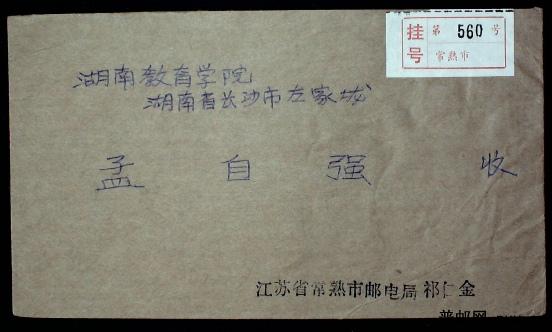 挂号 第 560 号
常熟市
湖南教育学院
湖南省长沙市左家垅
孟自强 收
江苏省常熟市邮电局 祁仁金
普邮网